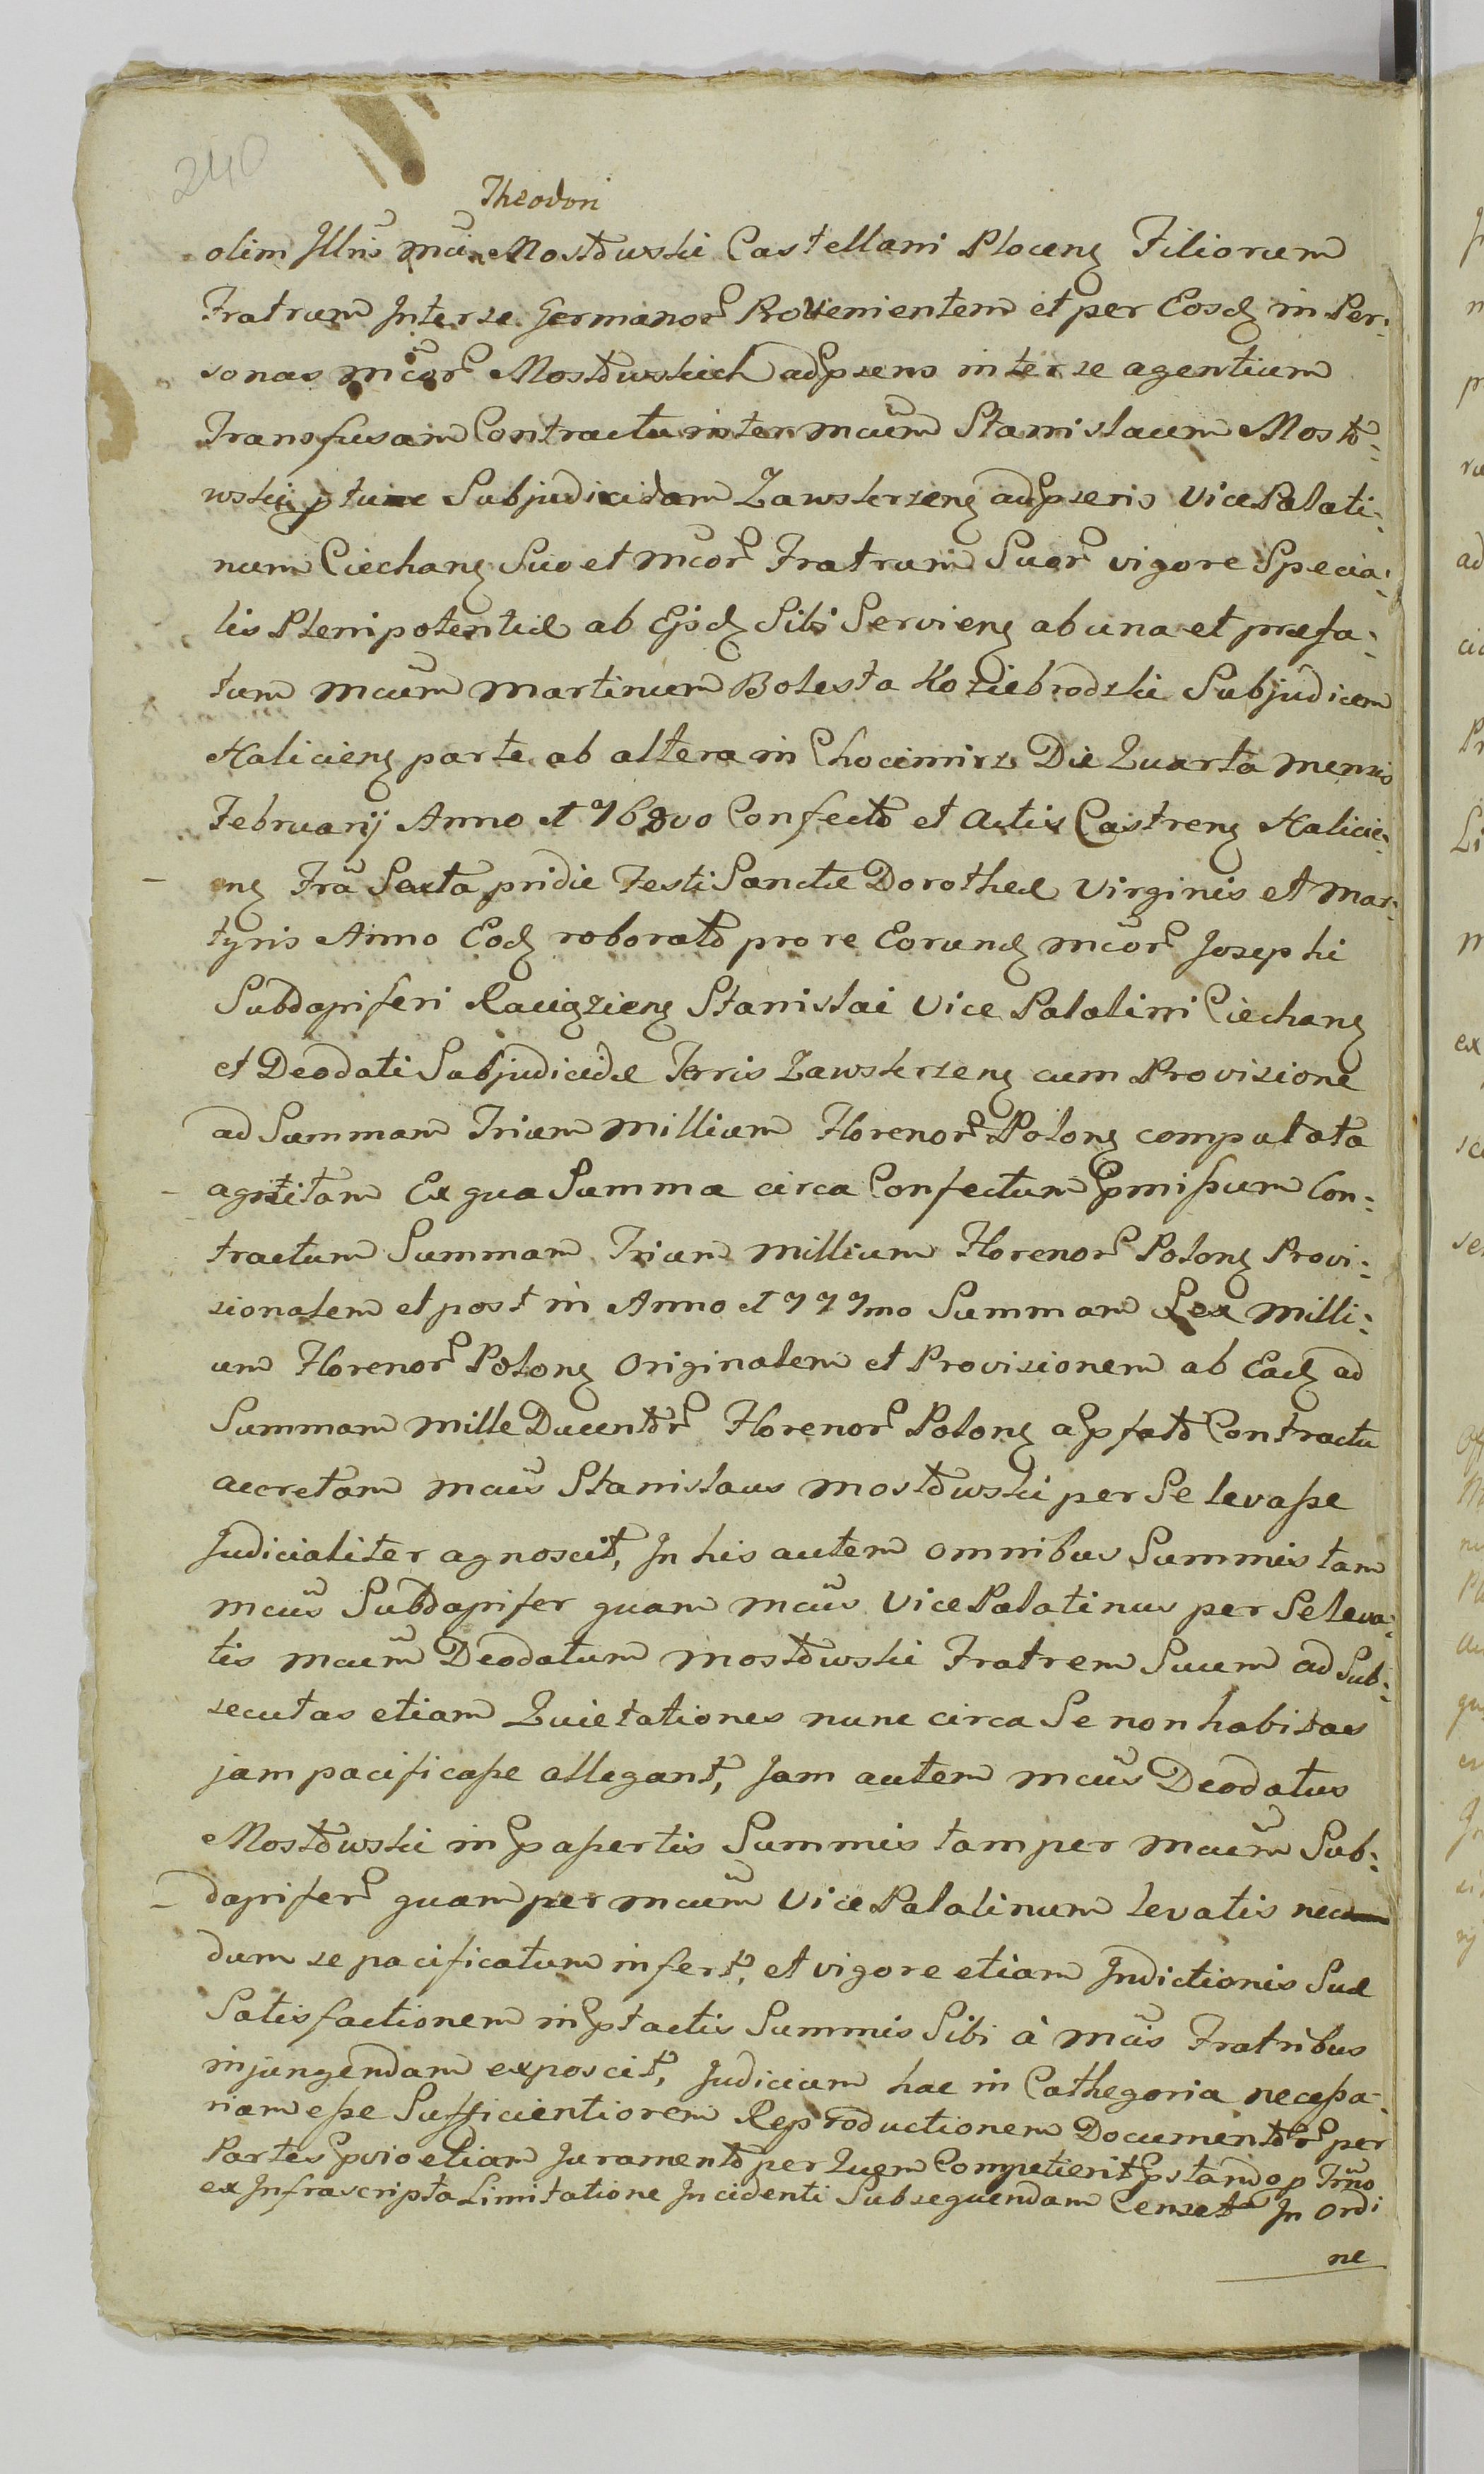 240
Theodori
olim Illris Mci Mostowski Castellani Ploceng Filiorum
Fratrum Inter se Germanor Provenientem et per Eosd in Per:
sonas Mcor Mostowskich adpraens inter se agentium
Transfusam Contractu inter Mcum Stanislaum Mosto:
wski ptunc Subjudicidam Zawskrzeng adpraens Vice Palati:
num Ciechang Suo et Mcor Fratrum Suor vigore Specia:
lis Plenipotentiæ ab Ejsd Sibi Servieng ab una et præfa:
tum Mcum Martinum Bolesta Koziebrodzki Subjudicem
Halicieng parte ab altera in Chocimirz Die Quarta Mensis
Februarij Anno 1768vo Confecto et Actis Castreng Halicie:
ng Fra Sexta pridie Festi Sanctæ Dorotheæ Virginis et Mar:
tyris Anno Eod roborato pro re Eorund Mcor Josephi
Subdapiferi Raciązieng Stanislai Vice Palatini Ciechang
et Deodati Subjudicidæ Terris Zawskrzeng cum Provisione
ad Summam Trium Millium Florenor Polong computata
agnitam Ex qua Summa circa Confectum pmissum Con:
tractum Summam Trium Millium Florenor Polong Provi:
sionalem et post in Anno 1771mo Summam Sex Milli:
um Florenor Polong Originalem et Provisionem ab Ead ad
Summam Mille Ducentor Florenor Polong a pfato Contractu
accretam Mcus Stanislaus Mostowski per Se levasse
Judicialiter agnoscit, In his autem omnibus Summis tam
Mcus Subdapifer quam Mcus Vice Palatinus per Se leva:
tis Mcum Deodatum Mostowski Fratrem Suum ad Sub:
secutas etiam Quietationes nunc circa Se non habitas
jam pacificasse allegant, Jam autem Mcus Deodatus
Mostowski in passertis Summis tam per Mcum Sub:
dapifer quam per Mcum Vice Palatinum levatis nec
dum se pacificatum infert, et vigore etiam Indictionis Suæ
Satisfactionem in ptactis Summis Sibi à Mcis Fratribus
injungendam exposcit, Judicium hac in Cathegoria necessa:
riam esse Sufficientiorem Reproductionem Documentor per
Partes pvio etiam Juramento per Quem Competierit pstando p Trno
ex Infrascripta Limitatione Incidenti Subsequendam Censet In Ordi
ne